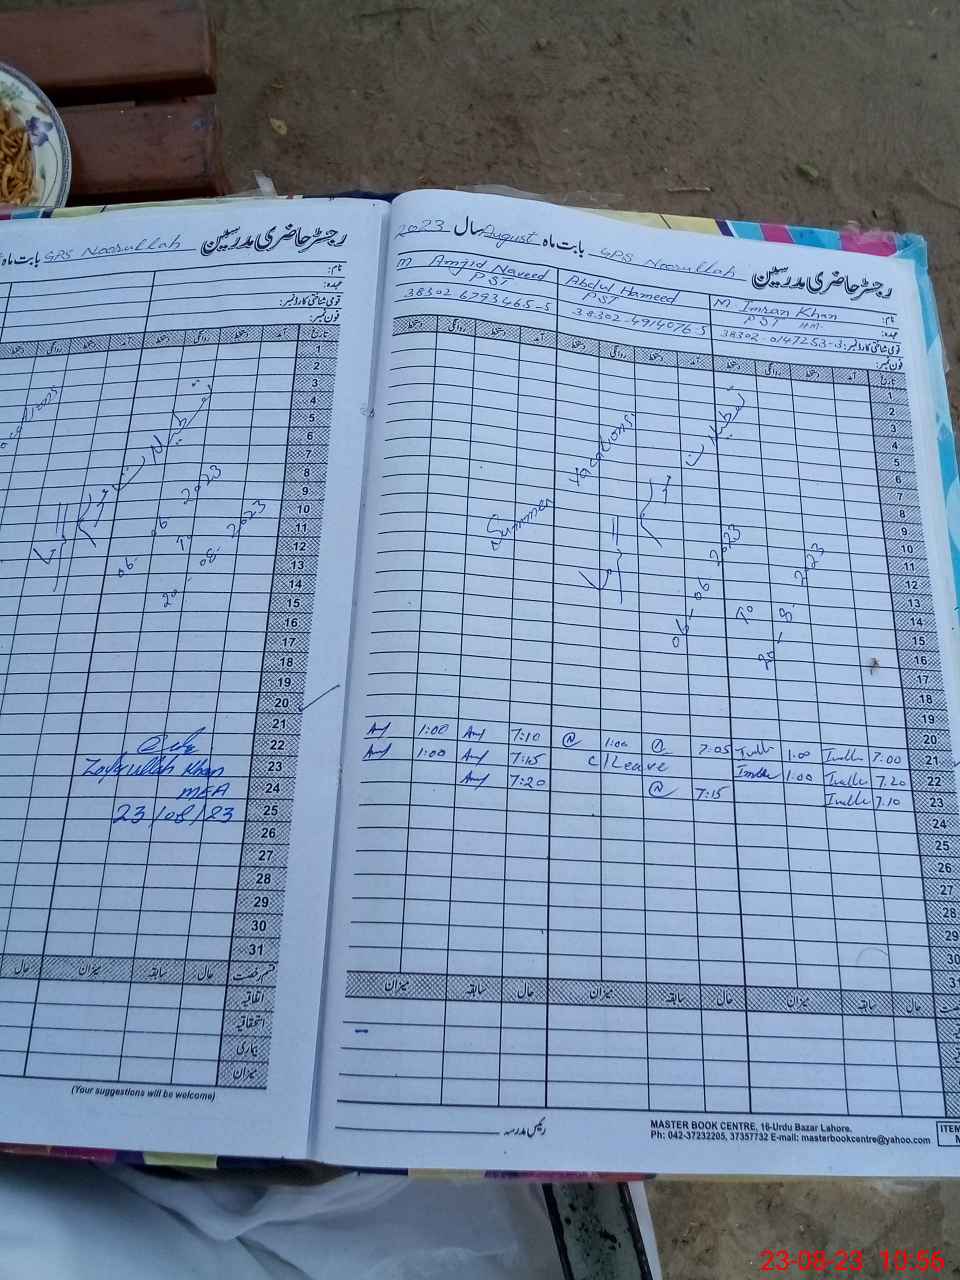 رجسٹر حاضری مدرسین
GPS Noorullah بابت ماہ
نام:
عہدہ:
قومی شناختی کارڈ نمبر:
فون نمبر:
تاریخ آمد دستخط روانگی دستخط آمد دستخط روانگی
1
2
3
4
5
6
7
8
9
10
11
12
13
14
15
16
17
18
19
20
21
22
23
24
25
26
27
28
29
30
31
تعطیلات موسم گرما
06- 06 2023
تا
20- 08- 2023
Zafarullah Khan
MEA
23/08/23
قسم رخصت حال سابقہ میزان حال
اتفاقیہ
استحقاقیہ
بیماری
میزان
(Your suggestions will be welcome)
رجسٹر حاضری مدرسین
GPS Noorullah بابت ماہ August سال 2023
نام: M. Imran Khan Abdul Hameed M Amjid Naveed
عہدہ: PST HM PST PST
قومی شناختی کارڈ نمبر: 38302-0147253-3 38302-4914076-5 38302-6793465-5
فون نمبر:
تاریخ آمد دستخط روانگی دستخط آمد دستخط روانگی دستخط آمد دستخط روانگی دستخط
1
2
3
4
5
6
7
8
9
10
11
12
13
14
15
16
17
18
19
20
21
22
23
24
25
26
27
28
29
30
31
Summer vacations
تعطیلات موسم گرما
06- 06 2023
تا
20- 8- 2023
1:00 7:10 1:00 7:05 1:00 7:00
1:00 7:15 C/Leave 1:00 7.20
7:20 7:15 7.10
حال سابقہ میزان حال سابقہ میزان حال سابقہ میزان
رئیس مدرسہ
MASTER BOOK CENTRE, 16-Urdu Bazar Lahore.
Ph: 042-37232205, 37357732 E-mail: masterbookcentre@yahoo.com
ITEM
23-08-23 10:56